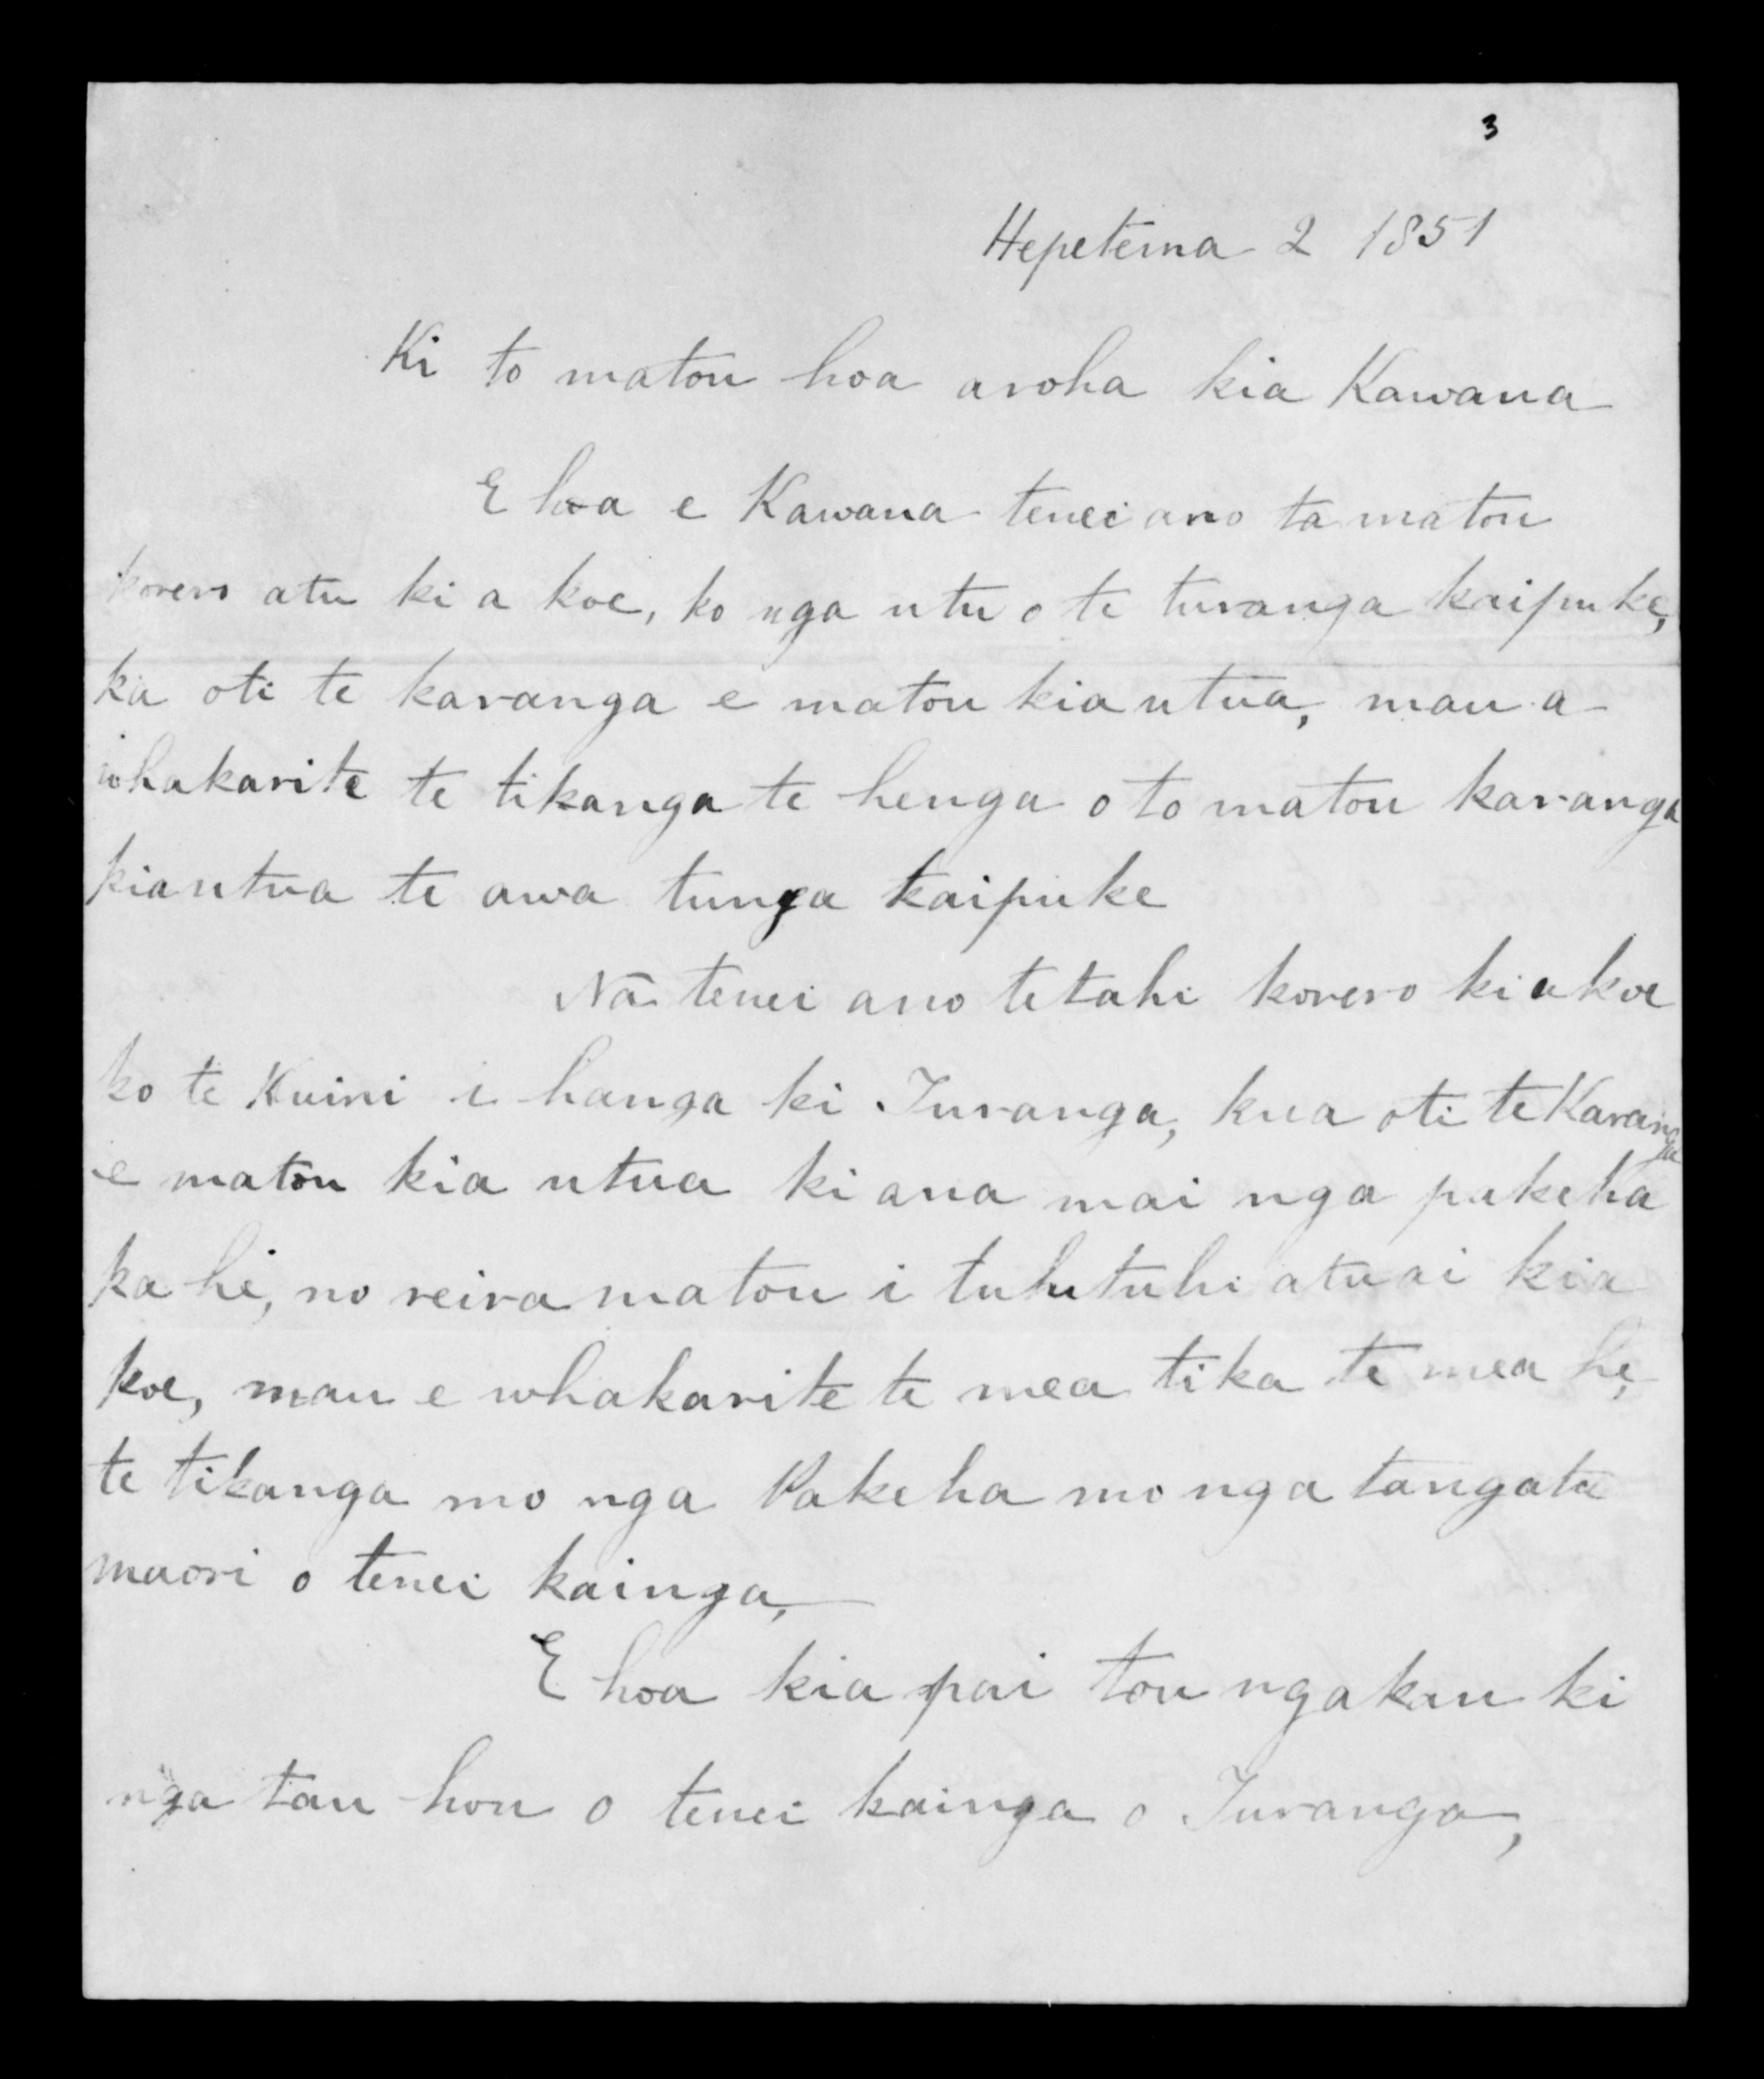 3
Hepetema 2 1851
Ki to matou hoa aroha kia Kawana
E hoa e Kawana tenei ano ta matou
korero atu ki a koe, ko nga utu o te turanga kaipuke,
ka oti te karanga e matou kia utua, mau a
whakarite te tikanga te henga o to matou karanga
kia utua te awa tunga kaipuke
Na tenei ano tetahi korero ki a koe
ko te Kuini i hanga ki Turanga, kua oti te Karanga
e matou kia utua ki ana mai nga pakeha
ka he, no reira matou i tuhituhi atu ai kia
koe, mau e whakarite te mea tika te mea he,
te tikanga mo nga Pakeha mo nga tangata
maori o tenei kainga,
E hoa kia pai tou ngakau ki
nga tau hou o tenei kainga o Turanga,